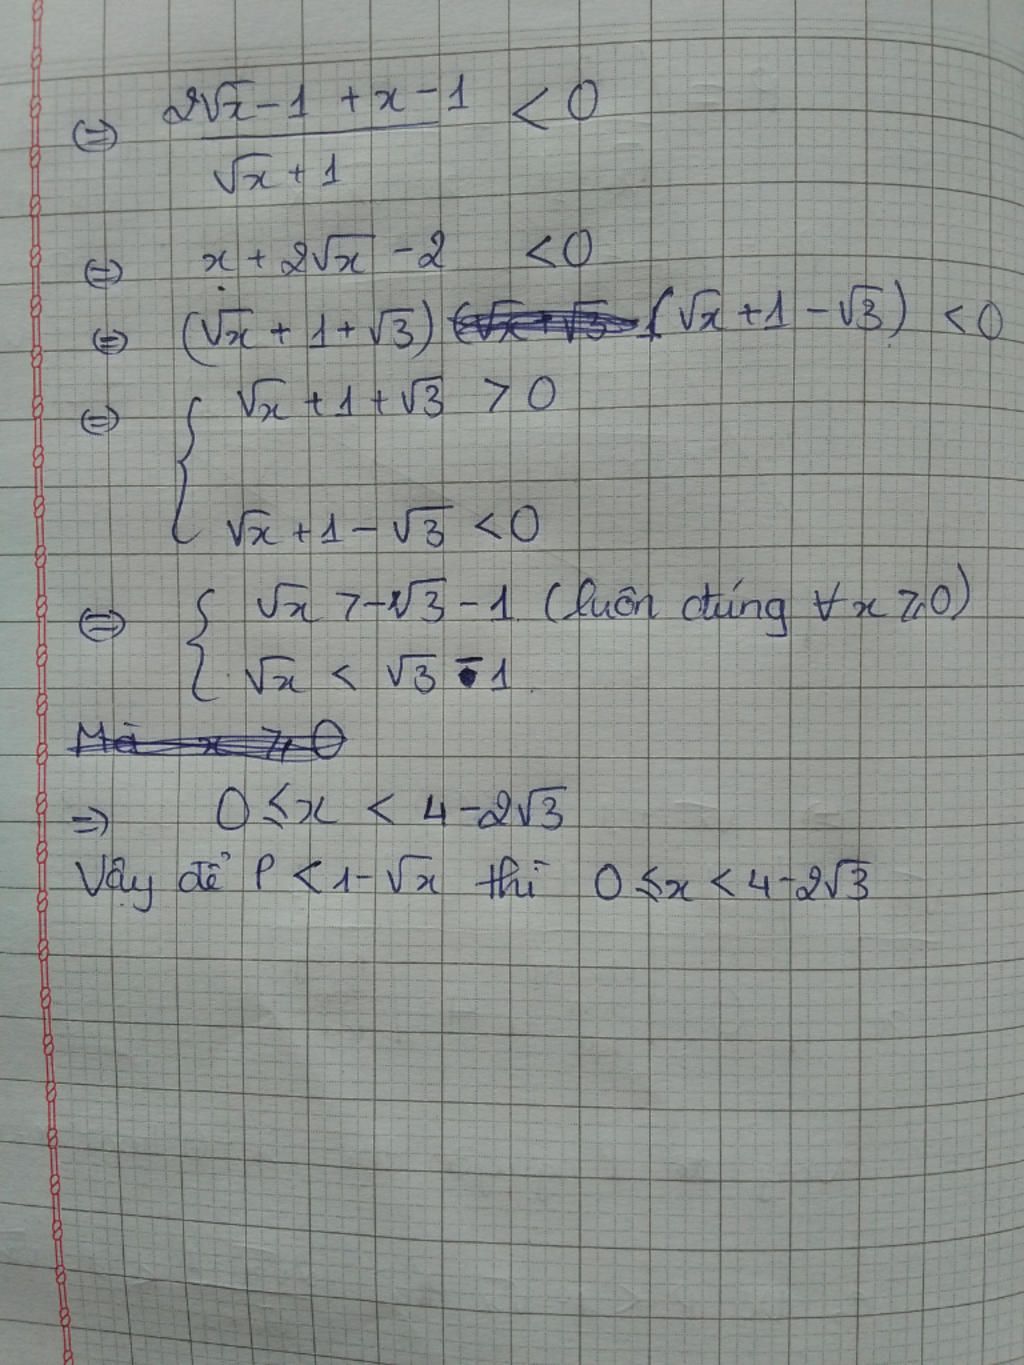 (=) (2√x - 1 + x - 1)/(√x + 1) < 0
(=) x + 2√x - 2 < 0
(=) (√x + 1 + √3) (√x + 1 - √3) < 0
(=) { √x + 1 + √3 > 0
√x + 1 - √3 < 0
(=) { √x > -√3 - 1 (luôn đúng ∀x ⩾ 0)
√x < √3 - 1
Mà x ⩾ 0
=) 0 ⩽ x < 4 - 2√3
Vậy để P < 1 - √x thì 0 ⩽ x < 4 - 2√3